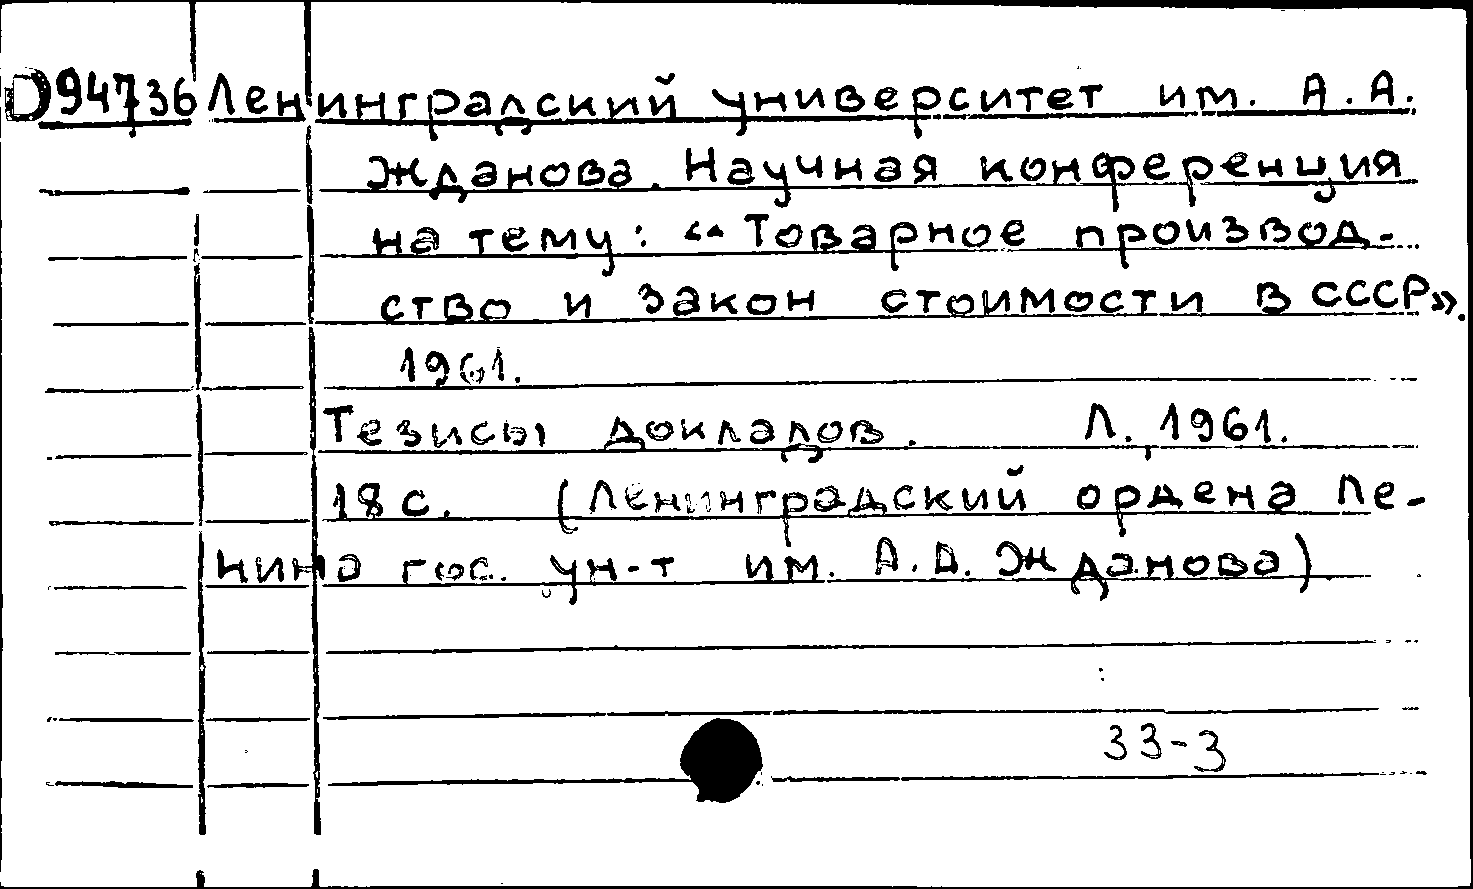 D94736 Ленинградский университет им. А.А.
Жданова. Научная конференция
на тему: "Товарное производ-
ство и закон стоимости в СССР».
1961.
Тезисы докладов. Л. 1961.
18 с. (Ленинградский ордена Ле-
нина гос. ун-т им. А.А. Жданова)
33-3